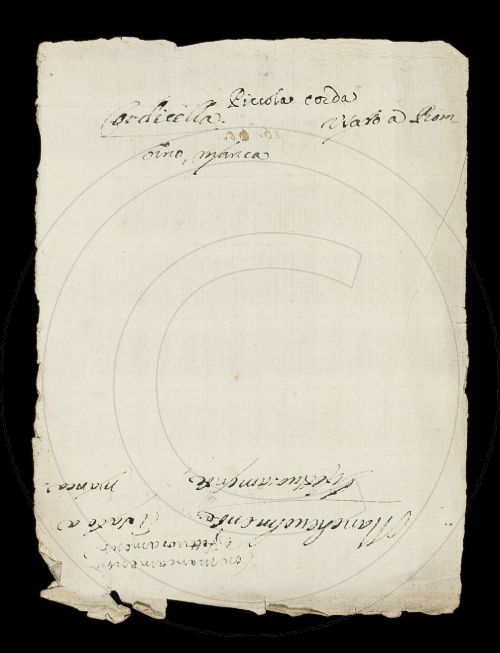 Cordicella. Piccola corda
Usato a Piom-
bino, manca
Con mancamento
Difettuosamente
Mancheuolmente. Usato a
manca.